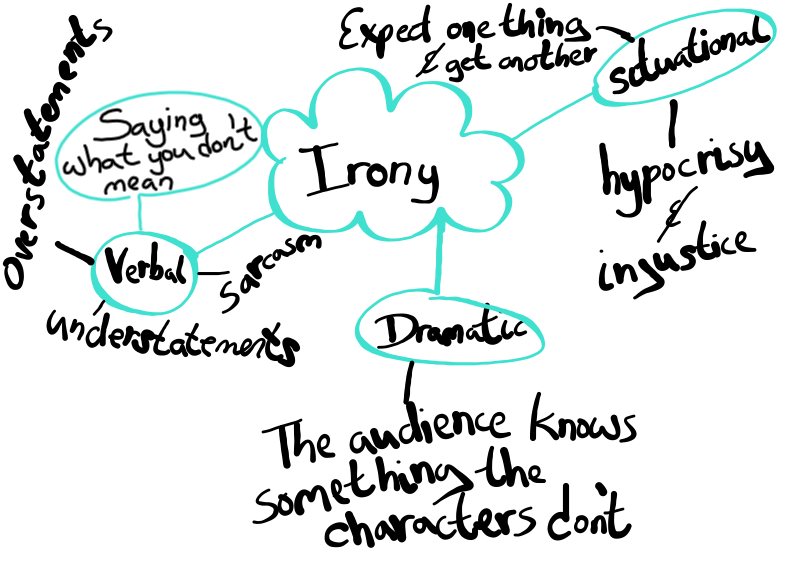 Expect one thing
& get another
situational
hypocrisy
&
injustice
Irony
Saying
what you don't
mean
Overstatements
Verbal
Sarcasm
understatements
Dramatic
The audience knows
something the
characters don't